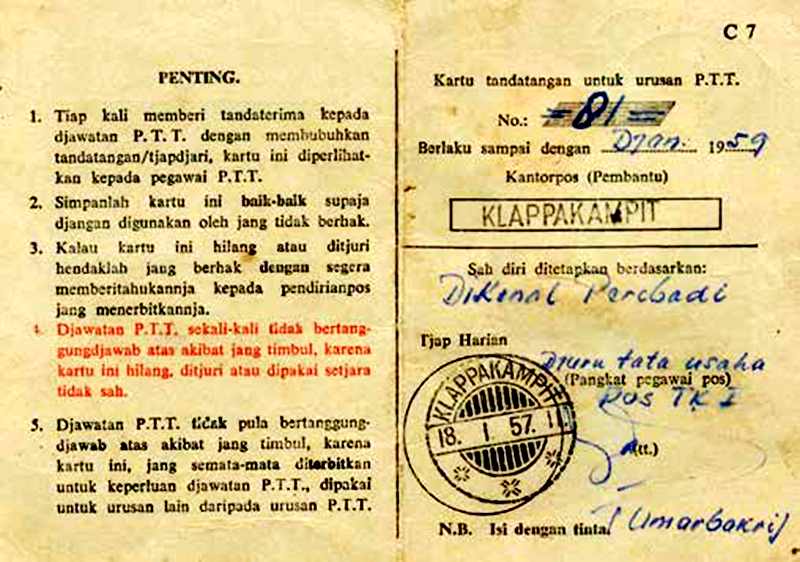 PENTING.
1. Tiap kali memberi tandaterima kepada
djawatan P. T. T. dengan membubuhkan
tandatangan/tjapdjari, kartu ini diperlihat-
kan kepada pegawai P.T.T.
2. Simpanlah kartu ini baik-baik supaja
djangan digunakan oleh jang tidak berhak.
3. Kalau kartu ini hilang atau ditjuri
hendaklah jang berhak dengan segera
memberitahukannja kepada pendirianpos
jang menerbitkannja.
4. Djawatan P.T.T. sekali-kali tidak bertang-
gungdjawab atas akibat jang timbul, karena
kartu ini hilang, ditjuri atau dipakai setjara
tidak sah.
5. Djawatan P.T.T. tidak pula bertanggung-
djawab atas akibat jang timbul, karena
kartu ini, jang semata-mata diterbitkan
untuk keperluan djawatan P.T.T., dipakai
untuk urusan lain daripada urusan P.T.T.
C 7
Kartu tandatangan untuk urusan P.T.T.
No.: 81
Berlaku sampai dengan Djan. 1959
Kantorpos (Pembantu)
KLAPPAKAMPIT
Sah diri ditetapkan berdasarkan:
Dikenal Peribadi
Tjap Harian
Djuru tata usaha
(Pangkat pegawai pos)
Pos TK I
KLAPPAKAMPIT
18. 1 57. 11
(tt.)
(Umarbakri)
N.B. Isi dengan tinta.